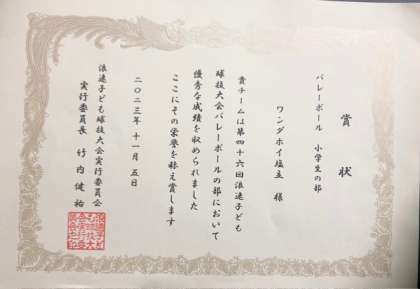 賞状
バレーボール 小学生の部
ワンダホイ塩立 様
貴チームは第四十六回浪速子ども
球技大会バレーボールの部において
優秀な成績を収められました
ここにその栄誉を称え賞します
二〇二三年 十一月 五日
浪速子ども球技大会実行委員会
実行委員長 竹内健祐